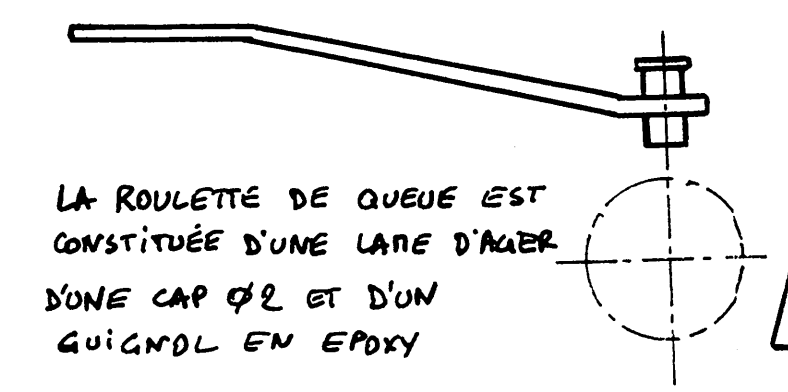 LA ROULETTE DE QUEUE EST
CONSTITUÉE D'UNE LAME D'ACIER
D'UNE CAP Ø2 ET D'UN
GUIGNOL EN EPOXY